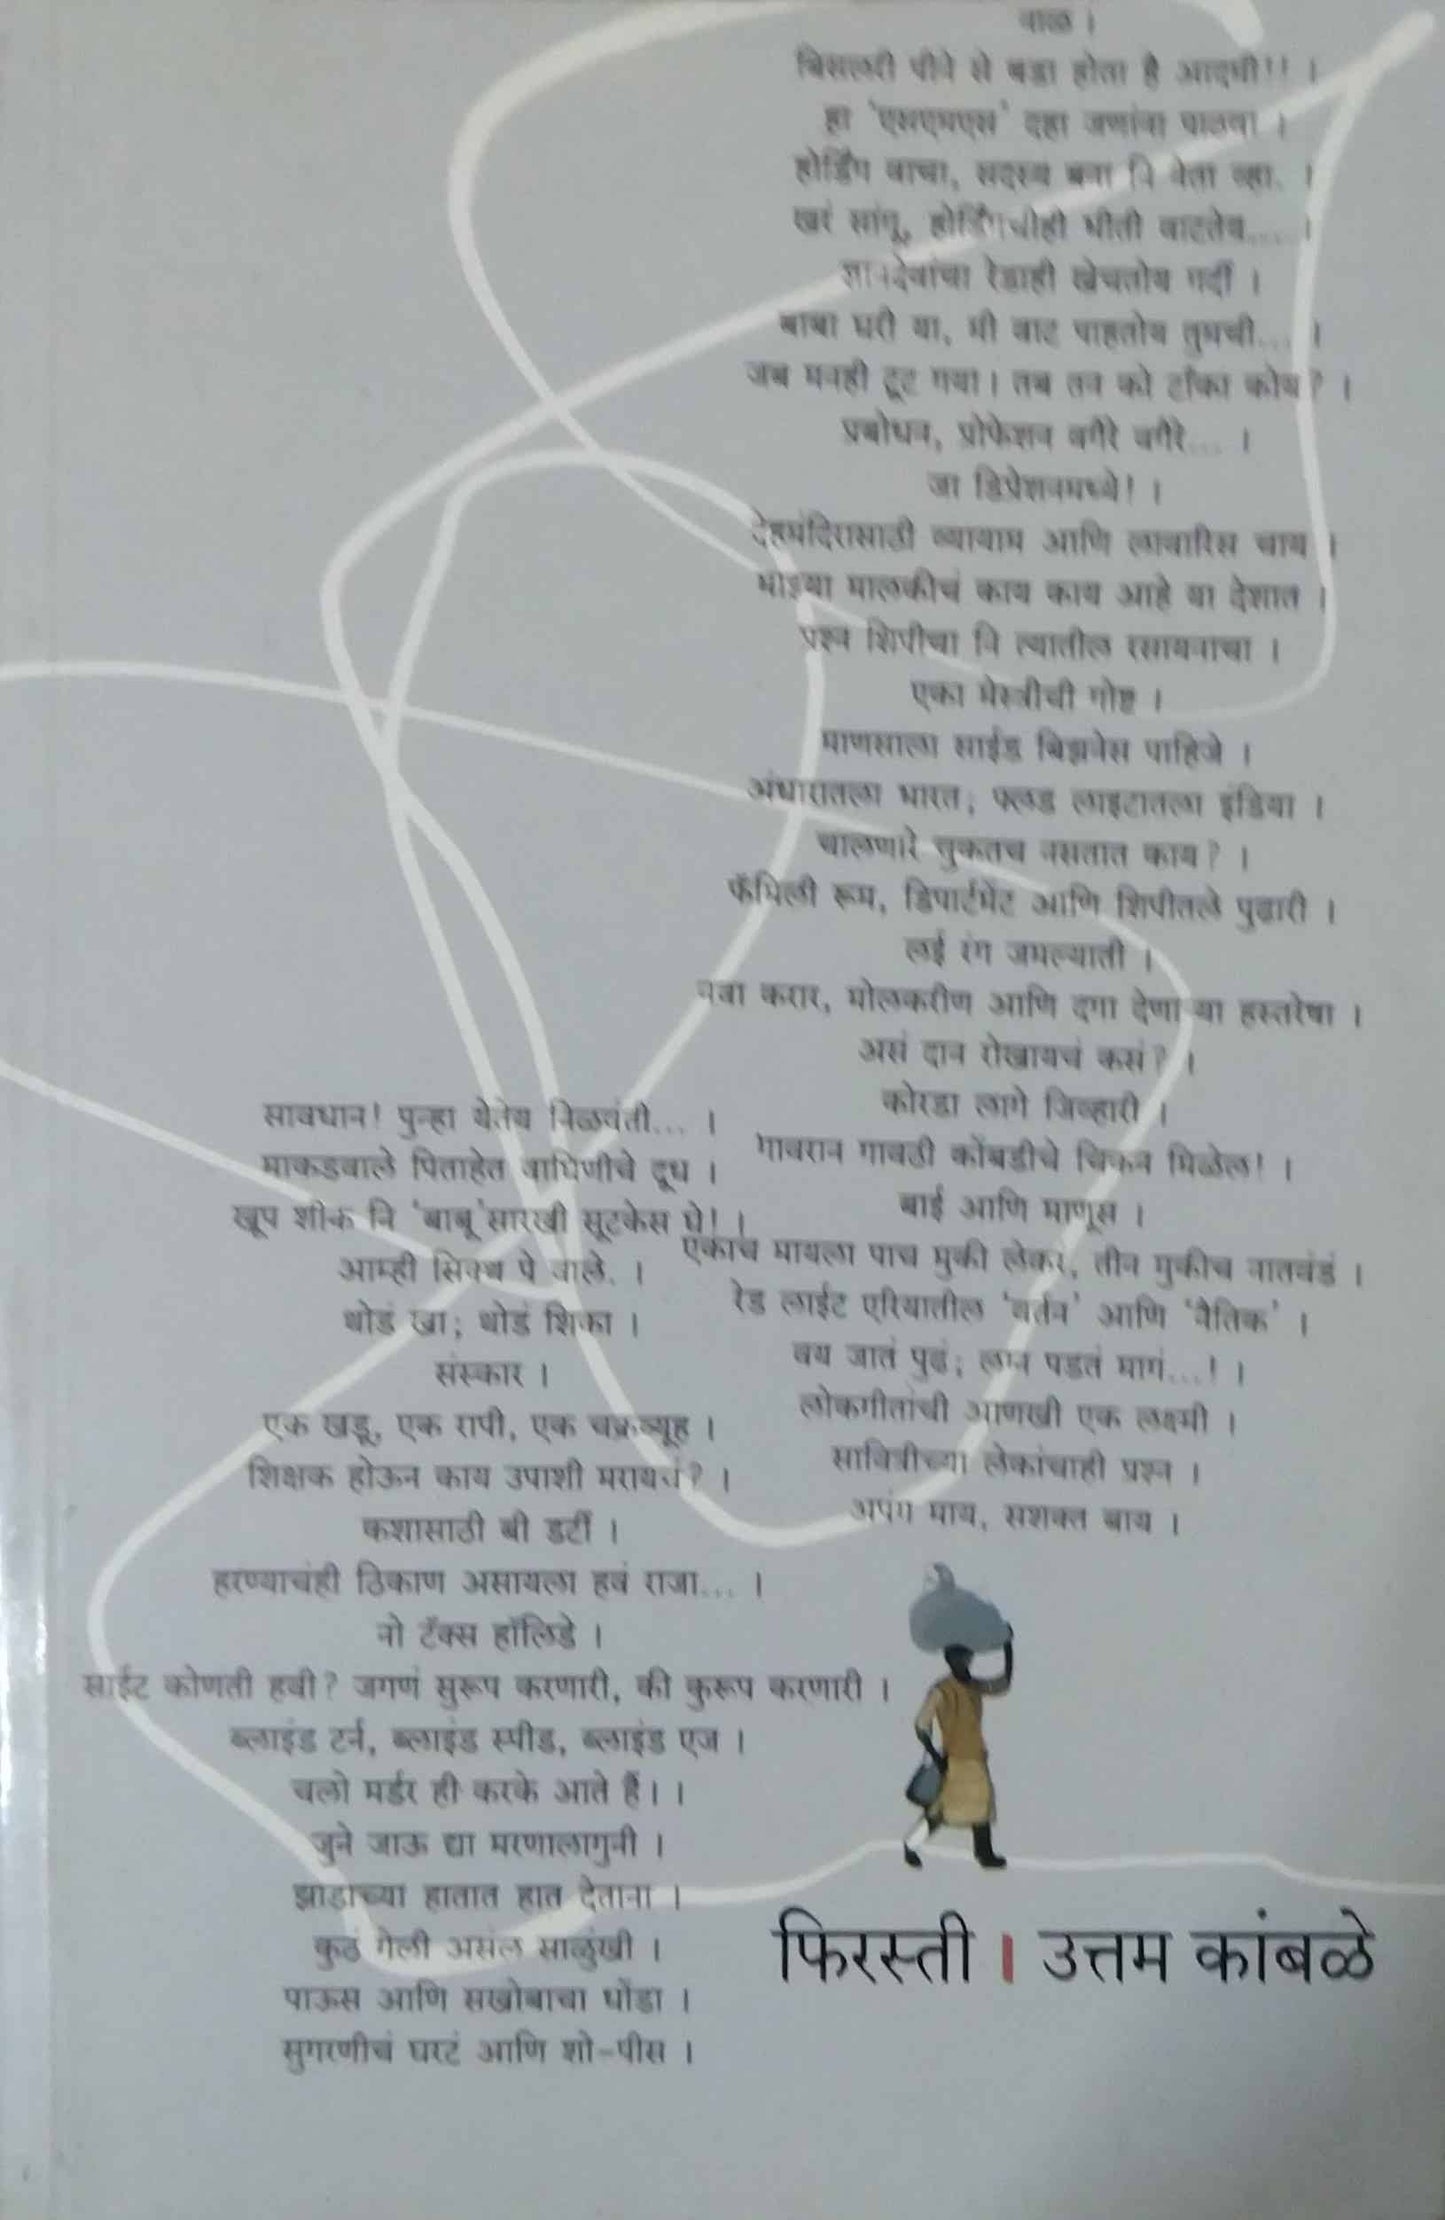 बिसलरी पीने से बडा होता है आदमी!! ।
हा 'एसएमएस' दहा जणांना पाठवा ।
होर्डिंग वाचा, सदस्य बना नि नेता व्हा. ।
खरं सांगू, होर्डिंगचीही भीती वाटतेय.... ।
ज्ञानदेवांचा रेडाही खेचतोय गर्दी ।
बाबा घरी या, मी वाट पाहतोय तुमची... ।
जब मनही टूट गया। तब तन को टाँका कोय? ।
प्रबोधन, प्रोफेशन वगैरे वगैरे... ।
जा डिप्रेशनमध्ये! ।
देहमंदिरासाठी व्यायाम आणि लावारिस चाय ।
माझ्या मालकीचं काय काय आहे या देशात ।
प्रश्न शिपीचा नि त्यातील रसायनाचा ।
एका मेस्त्रीची गोष्ट ।
माणसाला साईड बिझनेस पाहिजे ।
अंधारातला भारत; फ्लड लाइटातला इंडिया ।
चालणारे चुकतच नसतात काय? ।
फॅमिली रूम, डिपार्टमेंट आणि शिपीतले पुढारी ।
लई रंग जमल्याती ।
नवा करार, मोलकरीण आणि दगा देणाऱ्या हस्तरेषा ।
असं दान रोखायचं कसं? ।
कोरडा लागे जिव्हारी ।
गावरान गावठी कोंबडीचे चिकन मिळेल! ।
बाई आणि माणूस ।
एकाच मायला पाच मुकी लेकरं, तीन मुकीच नातवंडं ।
रेड लाईट एरियातील 'वर्तन' आणि 'नैतिक' ।
वय जातं पुढं; लग्न पडतं मागं...! ।
लोकगीतांची आणखी एक लक्ष्मी ।
सावित्रीच्या लेकांचाही प्रश्न ।
अपंग माय, सशक्त बाय ।
सावधान! पुन्हा येतेय निळवंती... ।
माकडवाले पिताहेत वाघिणीचे दूध ।
खूप शीक नि 'बाबू'सारखी सूटकेस घे! ।
आम्ही सिक्थ पे वाले. ।
थोडं खा; थोडं शिका ।
संस्कार ।
एक खडू, एक रापी, एक चक्रव्यूह ।
शिक्षक होऊन काय उपाशी मरायचं? ।
कशासाठी बी डर्टी ।
हरण्याचंही ठिकाण असायला हवं राजा... ।
नो टॅक्स हॉलिडे ।
साईट कोणती हवी? जगणं सुरूप करणारी, की कुरूप करणारी ।
ब्लाइंड टर्न, ब्लाइंड स्पीड, ब्लाइंड एज ।
चलो मर्डर ही करके आते हैं। ।
जुने जाऊ द्या मरणालागुनी ।
झाडाच्या हातात हात देताना ।
कुठं गेली असंल साळुंखी ।
पाऊस आणि सखोबाचा धोंडा ।
सुगरणीचं घरटं आणि शो-पीस ।
फिरस्ती । उत्तम कांबळे